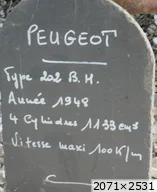 PEUGEOT
Type 202 B.H.
Année 1948
4 Cylindres 1133 cm3
Vitesse maxi 100 K/m
2071×2531